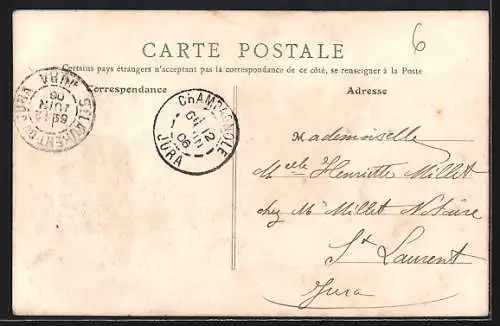 6
CARTE POSTALE
Certains pays étrangers n'acceptant pas la correspondance de ce côté, se renseigner à la Poste
Correspondance
Adresse
CHAMPAGNOLE
12
06
JURA
JUIN
06
JURA
Mademoiselle
Melle Henriette Millet
chez Mr Millet Notaire
St Laurent
Jura